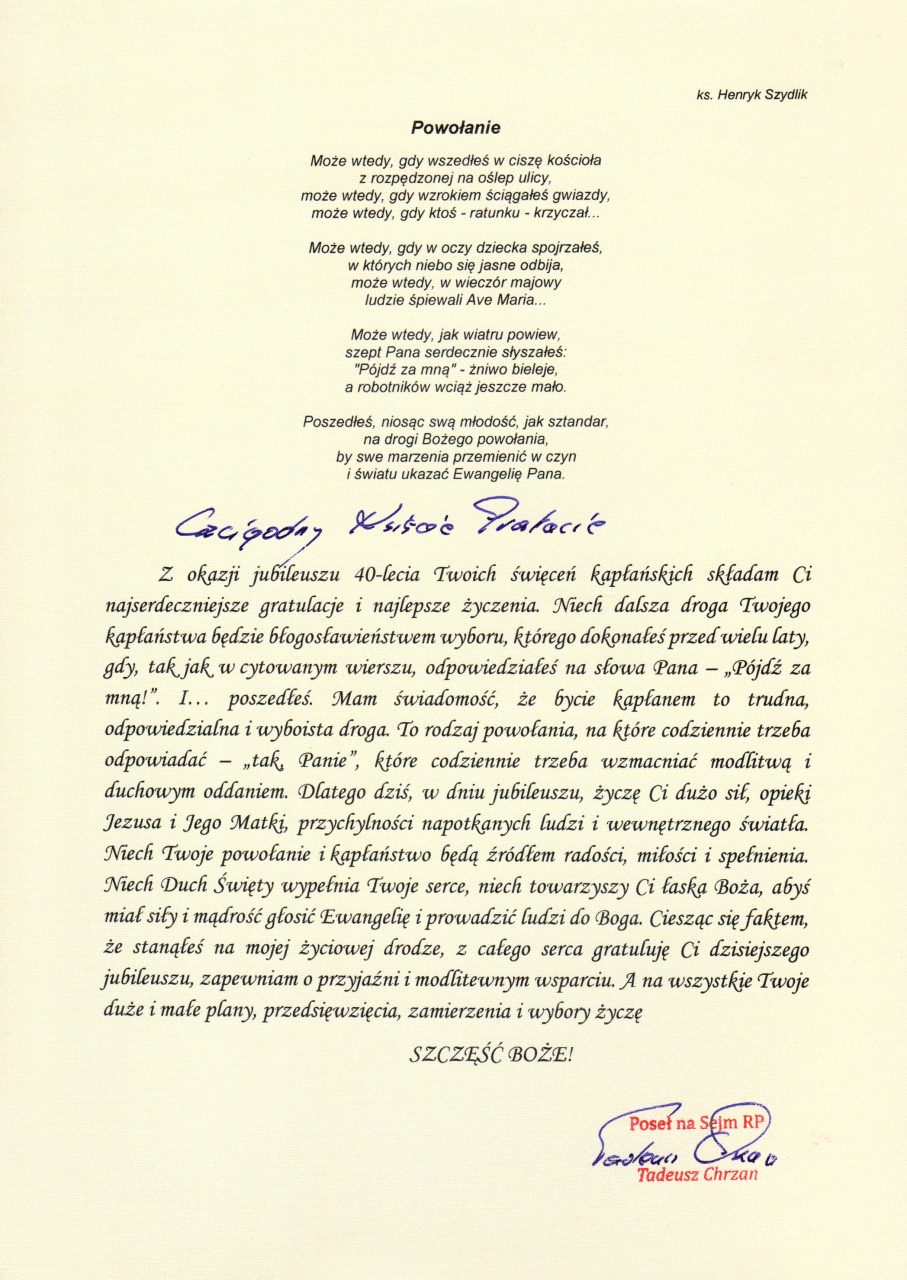 ks. Henryk Szydlik
Powołanie
Może wtedy, gdy wszedłeś w ciszę kościoła
z rozpędzonej na oślep ulicy,
może wtedy, gdy wzrokiem ściągałeś gwiazdy,
może wtedy, gdy ktoś - ratunku - krzyczał...
Może wtedy, gdy w oczy dziecka spojrzałeś,
w których niebo się jasne odbija,
może wtedy, w wieczór majowy
ludzie śpiewali Ave Maria...
Może wtedy, jak wiatru powiew,
szept Pana serdecznie słyszałeś:
"Pójdź za mną" - żniwo bieleje,
a robotników wciąż jeszcze mało.
Poszedłeś, niosąc swą młodość, jak sztandar,
na drogi Bożego powołania,
by swe marzenia przemienić w czyn
i światu ukazać Ewangelię Pana.
Czcigodny Księże Prałacie
Z okazji jubileuszu 40-lecia Twoich święceń kapłańskich składam Ci
najserdeczniejsze gratulacje i najlepsze życzenia. Niech dalsza droga Twojego
kapłaństwa będzie błogosławieństwem wyboru, którego dokonałeś przed wielu laty,
gdy, tak jak w cytowanym wierszu, odpowiedziałeś na słowa Pana – „Pójdź za
mną!”. I… poszedłeś. Mam świadomość, że bycie kapłanem to trudna,
odpowiedzialna i wyboista droga. To rodzaj powołania, na które codziennie trzeba
odpowiadać – „tak, Panie”, które codziennie trzeba wzmacniać modlitwą i
duchowym oddaniem. Dlatego dziś, w dniu jubileuszu, życzę Ci dużo sił, opieki
Jezusa i Jego Matki, przychylności napotkanych ludzi i wewnętrznego światła.
Niech Twoje powołanie i kapłaństwo będą źródłem radości, miłości i spełnienia.
Niech Duch Święty wypełnia Twoje serce, niech towarzyszy Ci łaska Boża, abyś
miał siły i mądrość głosić Ewangelię i prowadzić ludzi do Boga. Ciesząc się faktem,
że stanąłeś na mojej życiowej drodze, z całego serca gratuluję Ci dzisiejszego
jubileuszu, zapewniam o przyjaźni i modlitewnym wsparciu. A na wszystkie Twoje
duże i małe plany, przedsięwzięcia, zamierzenia i wybory życzę
SZCZĘŚĆ BOŻE!
Poseł na Sejm RP
Tadeusz Chrzan
Tadeusz Chrzan